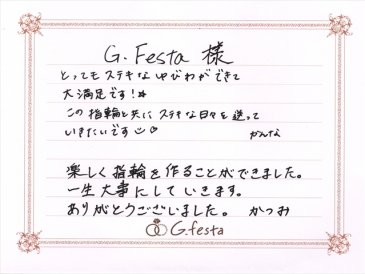 G. Festa 様
とってもステキなゆびわができて
大満足です!☆
この指輪と共にステキな日々を送って
いきたいです
かんな
楽しく指輪を作ることができました。
一生大事にしていきます。
ありがとうございました。 かつみ
G.festa